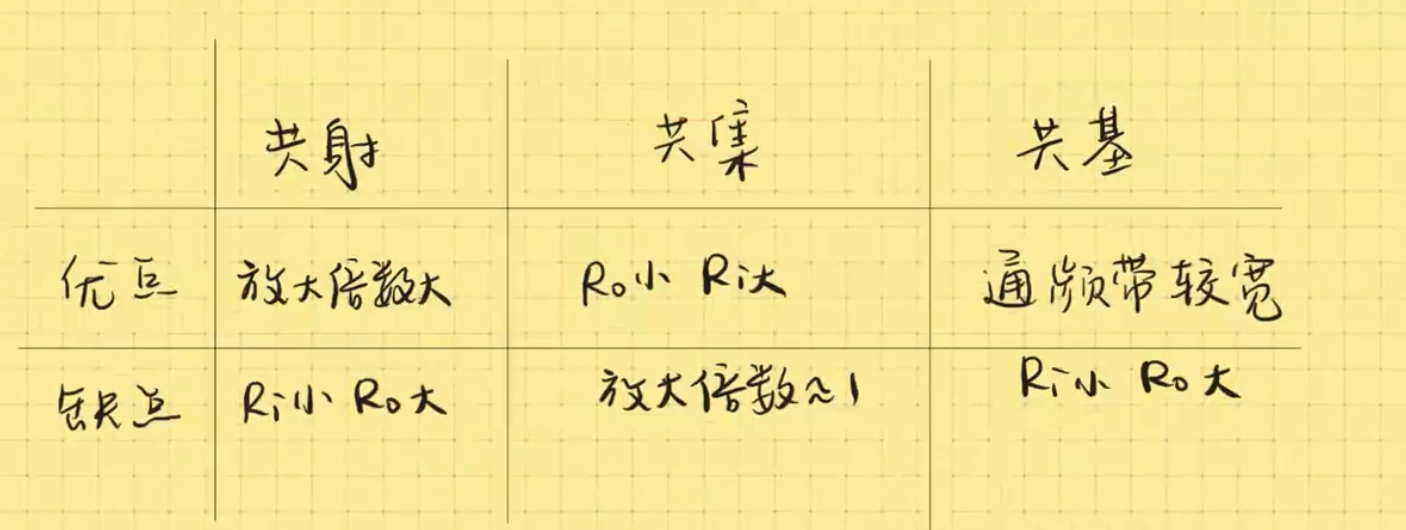 共射 共集 共基
优点 放大倍数大 Ro小 Ri大 通频带较宽
缺点 Ri小 Ro大 放大倍数≈1 Ri小 Ro大